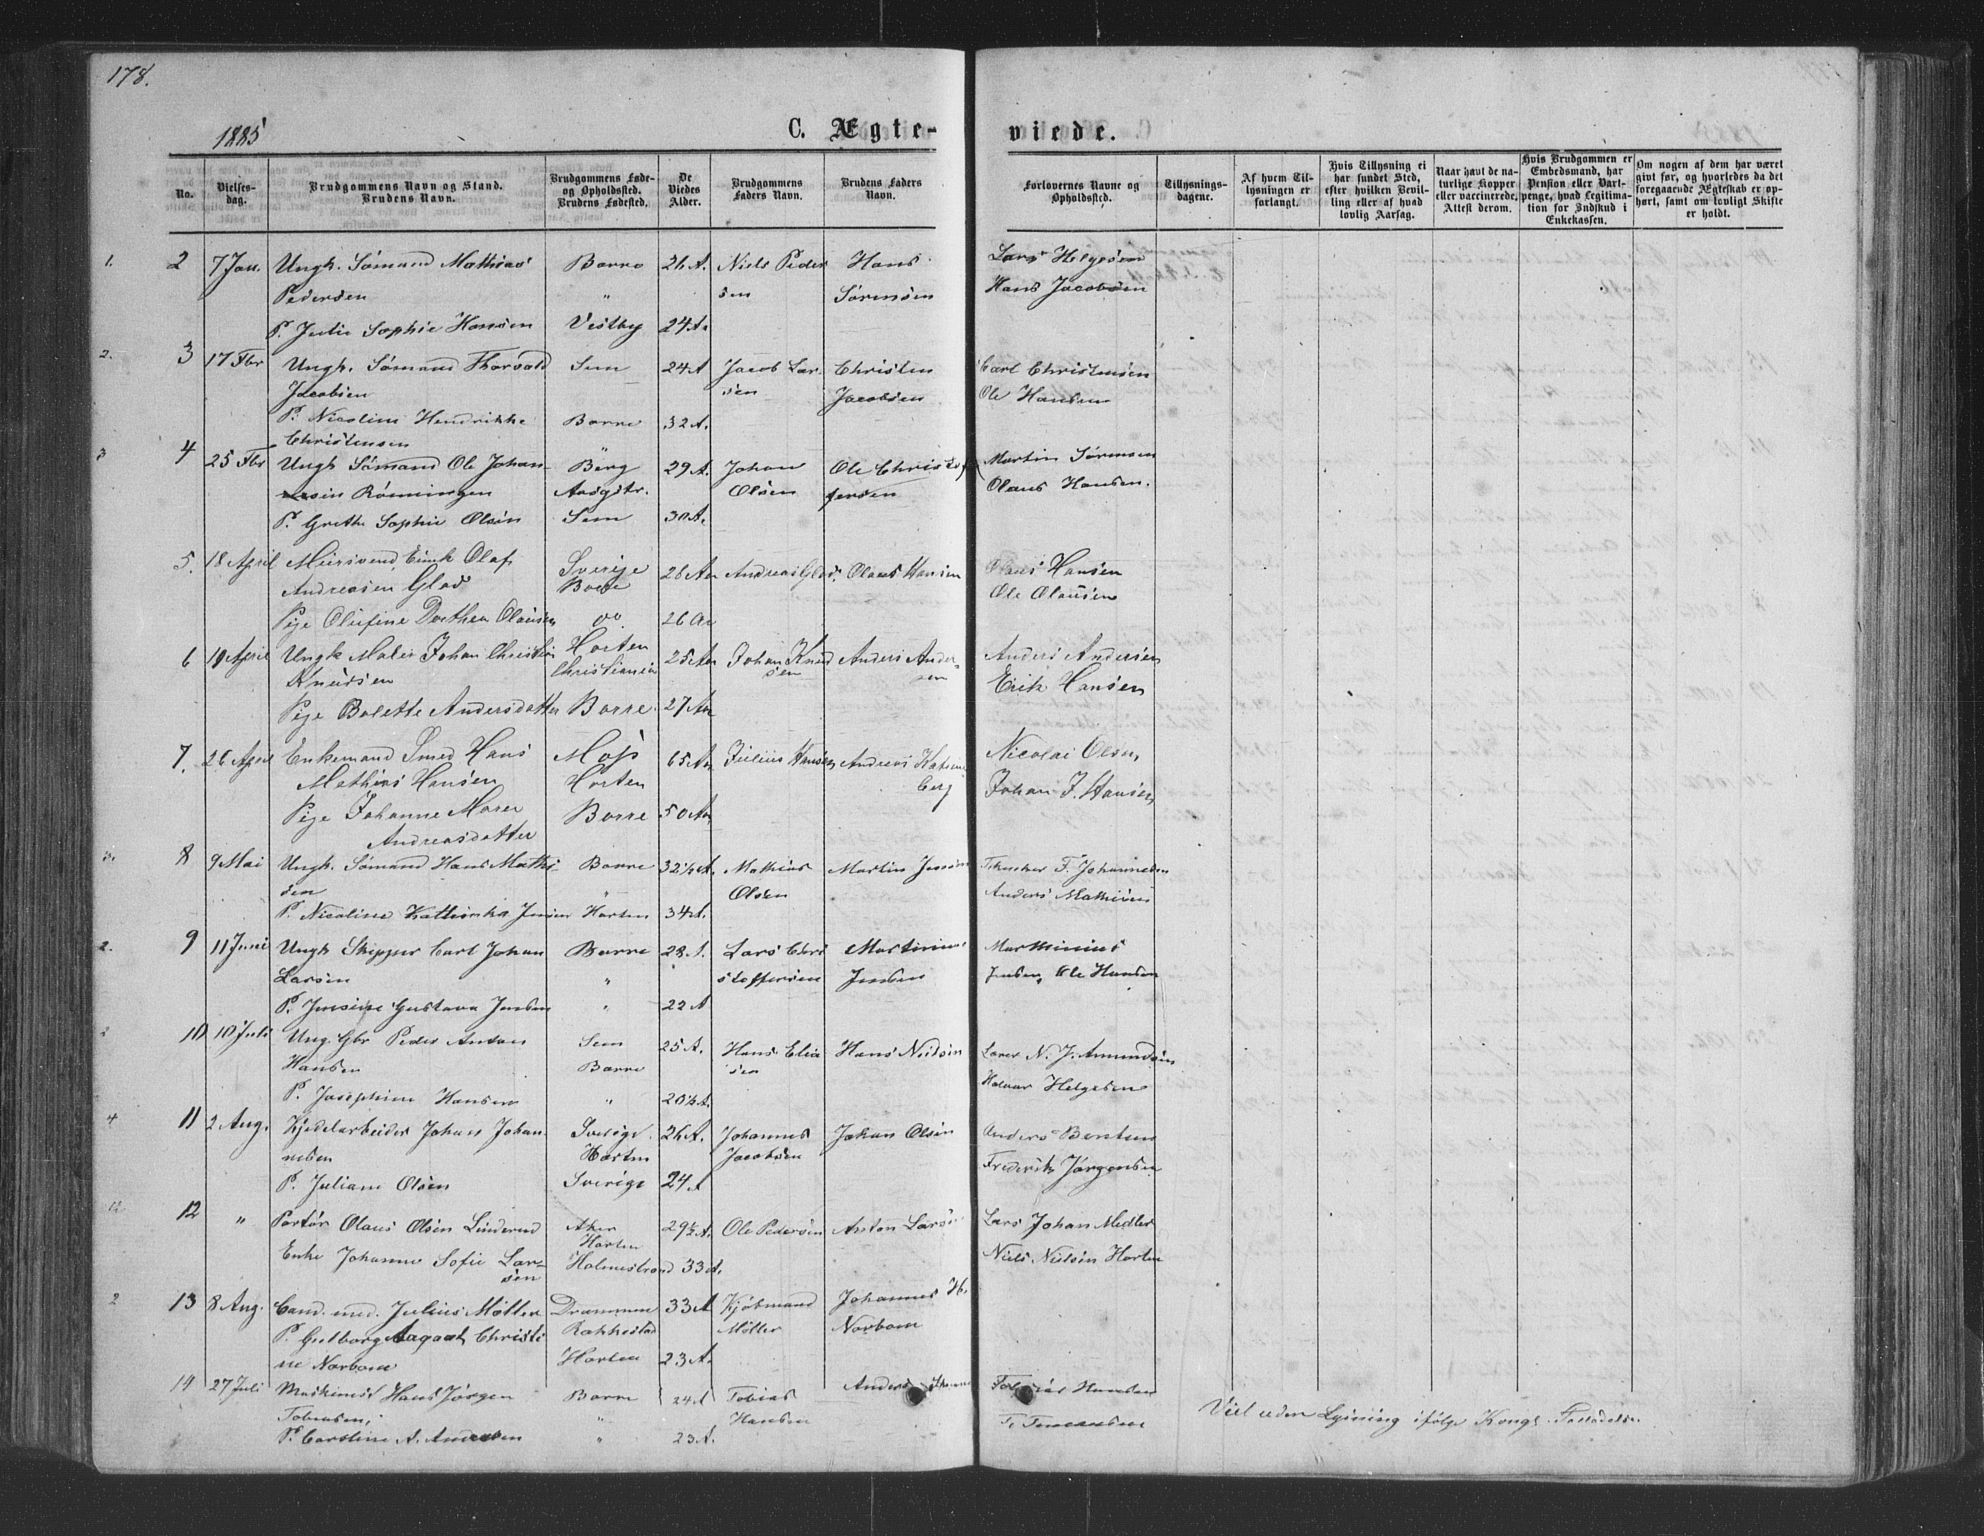 178.
1885
C. Ægteviede.
No.
Vielses-
dag.
Brudgommens Navn og Stand.
Brudens Navn.
Brudgommens Føde-
og Opholdssted.
Brudens Fødested.
De
Viedes
Alder.
Brudgommens
Faders Navn.
Brudens Faders
Navn.
Forlovernes Navne og
Opholdssted.
Tillysnings-
dagene.
Af hvem Til-
lysningen er
forlangt.
Hvis Tillysning ei
har fundet Sted,
efter hvilken Bevil-
ling eller af hvad
lovlig Aarsag.
Naar havt de na-
turlige Kopper
eller vaccinerede,
Attest derom.
Hvis Brudgommen er
Embedsmand, har
Pension eller Vart-
penge, hvad Legitima-
tion for Indskud i
Enkekassen.
Om nogen af dem har været
givt før, og hvorledes da det
foregaaende Ægteskab er op-
hørt, samt om lovligt Skifte
er holdt.
1. 2 7 Jan. Ungk. Sømand Mathias Borre 26 A. Niels Peder Hans Lars Helgesen
Pedersen " sen Sørensen Hans Jacobsen
P. Julie Sophie Hansen Vestby 24 A.
2. 3 17 Fbr Ungk. Sømand Thorvald Sem 24 A Jacob Lar- Christen Carl Christensen
Jacobsen sen Jacobsen Ole Hansen
P. Nicoline Hendrikke Borre 32 A.
Christensen
3 4 25 Fbr Ungk Sømand Ole Johan- Berg 29 A. Johan Ole Christof Martin Sørensen
sen Rønningen Aasgstr. Olsen fersen Olaus Hansen.
P. Grethe Sophie Olsen Sem 30 A.
5. 18 April Muursvend, Enk Olaf Sverige 28 Aar Andreas Glad. Olaus Hansen Olaus Hansen
Andreasen Glad Borre Ole Olausen
Pige Olufine Dorthea Olausen do. 26 Aar
6 19 April Ungk Maler Johan Christian Horten 25 Aar Johan Knud Anders Ander- Anders Andersen
Knudsen Christiania sen sen Erik Hansen
Pige Bolette Andersdatter Borre 27 Aar
7. 26 April Enkemand Smed Hans Moss 65 Aar Julius Hansen Andreas Nicolai Olsen
Mathias Hansen Horten berg Johan J. Hansen
Pige Johanne Maren Borre 50 Aar
Andreasdatter
8 9 Mai Ungk. Sømand Hans Mathi- Borre 32½ A. Mathias Martin Jensen F. Johannesen
sen " Olsen Anders Mathisen
P. Nicoline Kathinka Jensen Horten 34 A.
2. 9 11 Juni Ungk Skipper Carl Johan Borre 28 A. Lars Chri Martinius Marthinius
Larsen " stoffersen Jensen Jensen, Ole Hansen
P. Jensine Gustava Jensen " 22 A
2 10 10 Juli Ung. Gbr Peder Anton Sem 25 A. Hans Elia Hans Nielsen Lærer N. J. Amundsen
Hansen Borre sen Halvor Helgesen
P. Josephine Hansen " 20½ A.
4 11 2 Aug. Kjedelarbeider Johan Johan- Sverige. 26 A. Johannes Johan Olsen Anders Berntsen
nesen Horten Jacobsen Frederik Jørgensen
P. Juliane Olsen Sverige 24 A
12 12 " Portør Olaus Olsen Linderud Aker 29½ A. Ole Pedersen Anton Larsen Lars Johan Medler
Horten
Enke Johanne Sofie Lar- Holmestrand 33 A. Niels Nielsen Horten
sen
2 13 8 Aug. Cand. med. Julius Møller Drammen 33 A Kjøbmand Johannes H.
P. Gulborg Aagaat Christi Rakkestad Møller Norbom
ne Norbom Horten 23 A.
14 27 Juli Maskinist Hans Jørgen Borre 24 A Tobias Anders Tobias Hansen
Tobiasen, " Hansen
P. Caroline A. Andersen " 23 A.
Viet uden Lysning ifølge Kongl. Tilladelse.